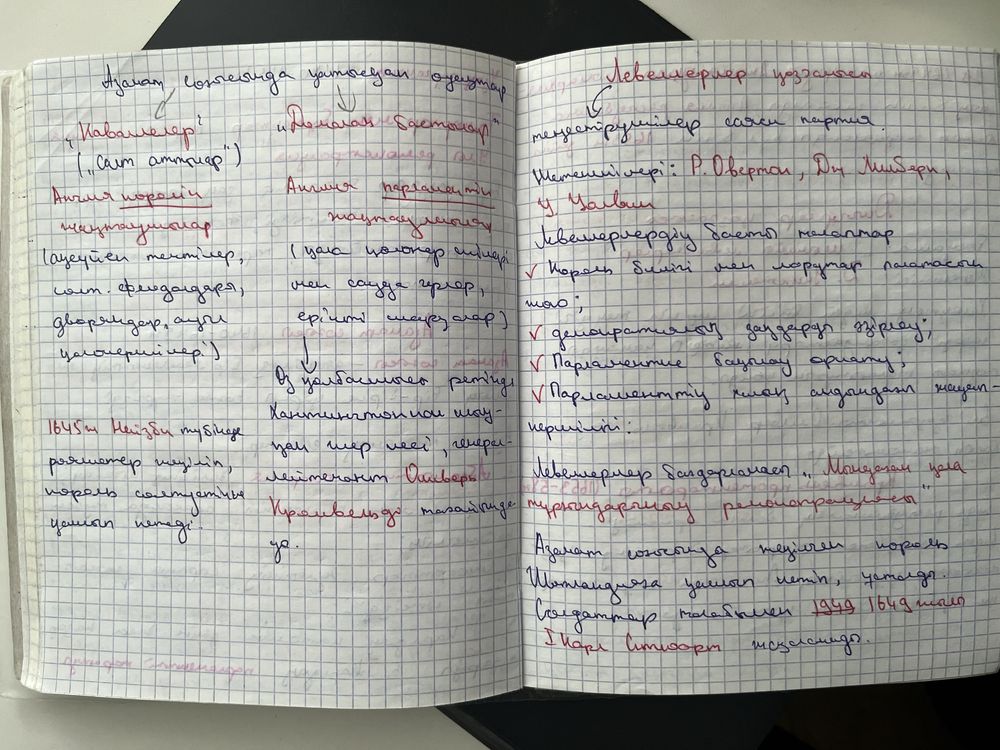 Азамат соғысында қатысқан одақтар
"Кавалелер"
("салт аттылар")
Англия королін
жақтаушылар
(ақсүйек тектілер,
солт. феодалдары,
дворяндар, ауыл
қолөнершілер)
1645ж Нейзби түбінде
роялистер жеңіліп,
король солтүстікке
қашып кетеді.
"Домалақ бастылар"
Англия парламентін
жақтаушылар
(қала қолөнершілері
мен саудагерлер,
ерікті шаруалар)
Өз қолбасшысы ретінде
Хантингтоннан шық-
қан жер иесі, генерал-
лейтенант Оливерь
Кромвельді тағайындай-
ды.
Левеллерлер қозғалысы
теңестірушілер саяси партия.
Жетекшілері: Р. Овертон, Дж Лильберн,
У. Уолвин
Левеллерлердің басты талаптар
✓ Король билігі мен лордтар палатасын
жою;
✓ демократиялық заңдарды әзірлеу;
✓ Парламентке бақылау орнату;
✓ Парламенттің халық алдындағы жауап-
кершілігі:
Левеллерлер бағдарламасы "Мыңдаған қала
тұрғындарының ремонстрациясы"
Азамат соғысында жеңілген король
Шотландияға қашып кетіп, ұсталды.
Солдаттар талабымен 1949 1649 жылы
I Карл Стюарт жазаланды.